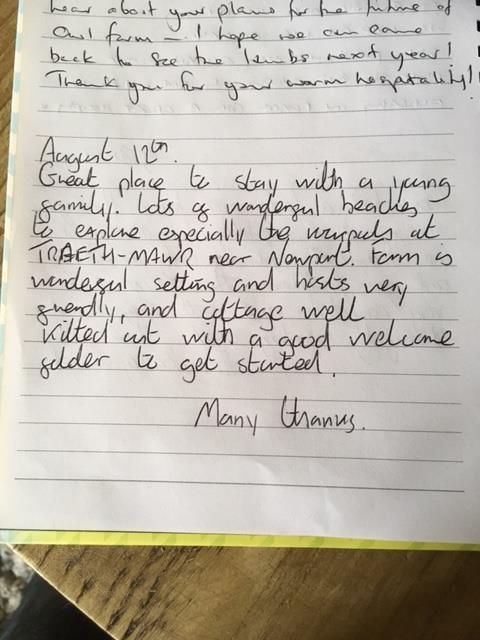 hear about your plans for the future of
Owl farm - I hope we can come
back to see the lambs next year!
Thank you for your warm hospatality!
August 12th.
Great place to stay with a young
family. Lots of wonderful beaches
to explore especially the at
TRAETH-MAWR near Newport. Farm is
wonderful setting and hosts very
friendly, and cottage well
kitted out with a good welcome
folder to get started.
Many thanks.